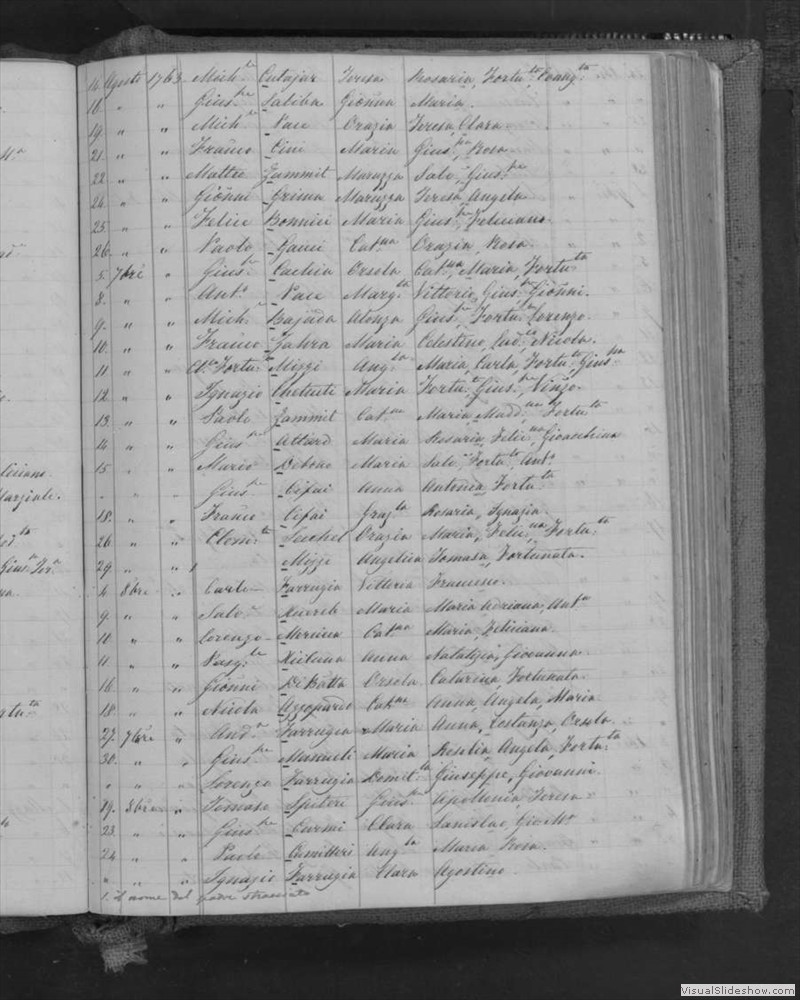 14 Agosto 1763 Mich.le Cutajar Teresa Rosaria, Fortu.ta Evang.ta
16 " " Gius.pe Saliba Gionna Maria.
19 " " Mich.le Pace Grazia Teresa, Clara.
21 " " Franco Cini Maria Gius.pa Rosa.
22 " " Matteo Zammit Maruzza Salv.e Gius.pe
24 " " Gionni Grima Maruzza Teresa, Angela
25 " " Felice Bonnici Maria Gius.pe Feliciano
26 " " Paolo Gauci Cat.na Grazia Rosa.
5 7bre " Gius.pe Cachia Orsola Cat.na, Maria, Fortu.ta
8 " " Ant.o Pace Marg.ta Vittorio, Gius.pe Gionni.
9 " " Mich.le Bajada Gius.pe, Fortu.to Lorenzo.
10 " " Franco Zahra Maria Celestino, Nicola.
11 " " Fortu.to Mizzi Ang.la Maria, Carla, Fortu.ta Gius.pa
12 " " Ignazio Chetcuti Maria Fortu.to Gius.pe, Vinzo.
13 " " Paolo Zammit Cat.na Maria, Madd.na Fortu.ta
14 " " Gius.pe Attard Maria Rosaria, Felic.na Gioachina
15 " " Mario Debono Maria Salv.e Fortu.to Ant.o
" " " Gius.pe Cefai Anna Antonia, Fortu.ta
18 " " Franco Cefai Graz.la Rosaria, Ignazia.
26 " " Clem.te Grazia Maria, Felic.na, Fortu.ta
29 " " 1 Mizzi Angelica Tomasa, Fortunata.
4 8bre " Carlo Farrugia Vittoria Francesco.
9 " " Salv.e Xuereb Maria Maria Adriana, Ant.a
10 " " Lorenzo Cat.na Maria, Feliciana.
11 " " Pasq.le Xicluna Anna Natalizia, Giovanna.
16 " " Gionni DeBatta Orsola Catarina Fortunata.
18 " " Nicola Azzopardo Cat.na Anna, Angela, Maria
27 7bre " And.a Farrugia Maria Anna, Costanza, Orsola.
30 " " Gius.pe Mamueli Maria Rosalia, Angela, Fortu.ta
" " " Lorenzo Farrugia Domit.la Giuseppe, Giovanni.
19 8bre " Tomaso Spiteri Gius.pa Apollonia Teresa.
23 " " Gius.pe Curmi Clara Stanislao
24 " " Paolo Camilleri Ang.la Maria Rosa.
" " " Ignazio Farrugia Clara Agostino.
1. il nome del padre stracciato
liciano
Marziale.
VisualSlideshow.com